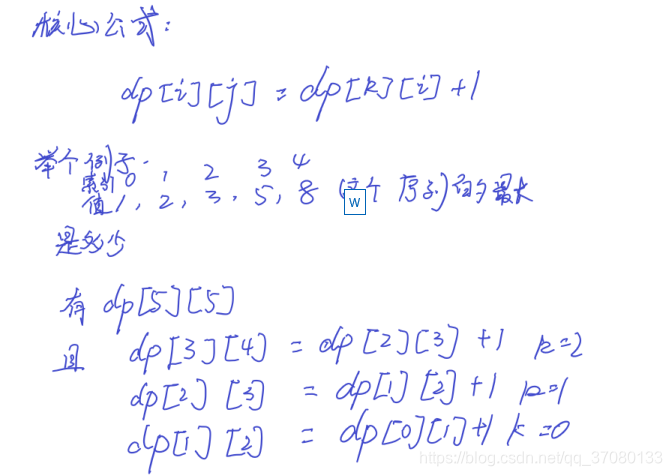 核心公式:
dp[i][j] = dp[k][i]+1
举个例子.
索引 0 1 2 3 4
值 1, 2, 3, 5, 8 (这个 序列)的最大
W
是多少
有 dp[5][5]
且 dp[3][4] = dp[2][3] +1 k=2
dp[2][3] = dp[1][2]+1 k=1
dp[1][2] = dp[0][1]+1 k=0
https://blog.csdn.net/qq_37080133